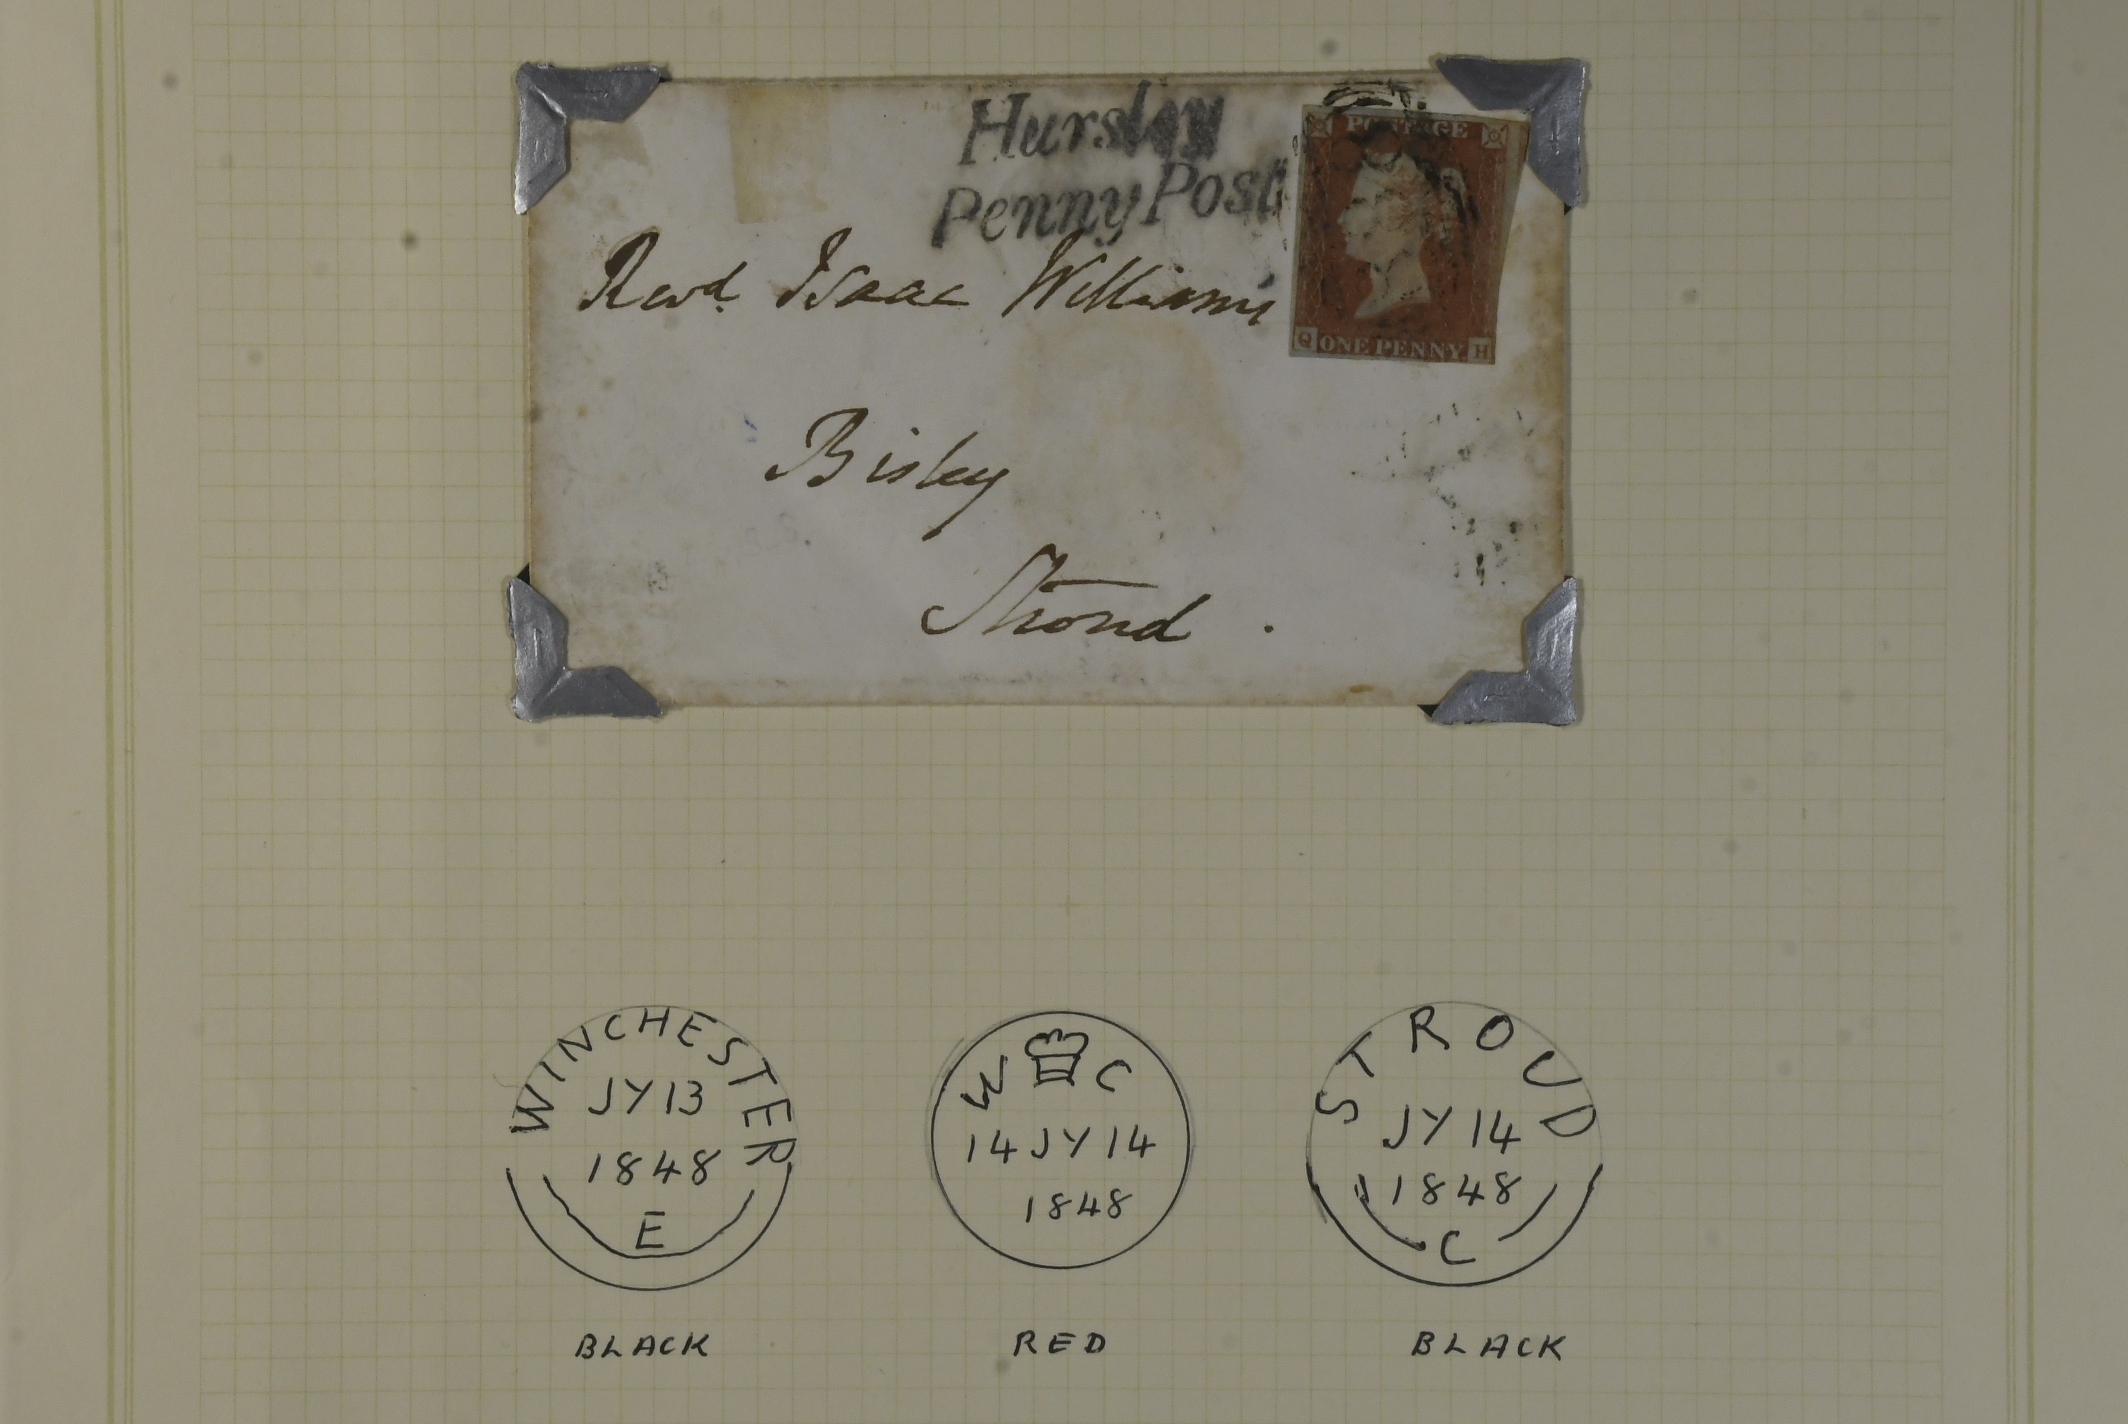 Hursley
Penny Post
POSTAGE
Q ONE PENNY H
Revd. Isaac Williams
Bisley
Stroud.
WINCHESTER
JY 13
1848
E
BLACK
W C
14 JY 14
1848
RED
STROUD
JY 14
1848
C
BLACK